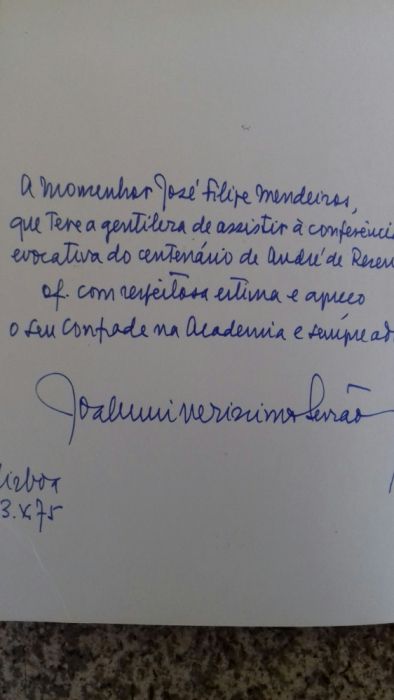 A Monsenhor José Filipe Mendeiros,
que teve a gentileza de assistir à conferência
evocativa do centenário de André de Resen
of. com respeitosa estima e apreço
o seu Confrade na Academia e sempre ad
Joaquim Veríssimo Serrão
Lisboa
3.X.75